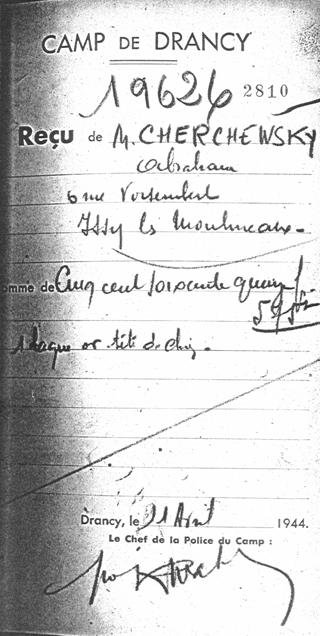 CAMP DE DRANCY
19626 2810
Reçu de M. CHERCHEWSKY
Abraham
6 rue
Issy les Moulineaux -
omme de Cinq cent soixante
1 bague or tête de
Drancy, le 21 Avril 1944.
Le Chef de la Police du Camp :